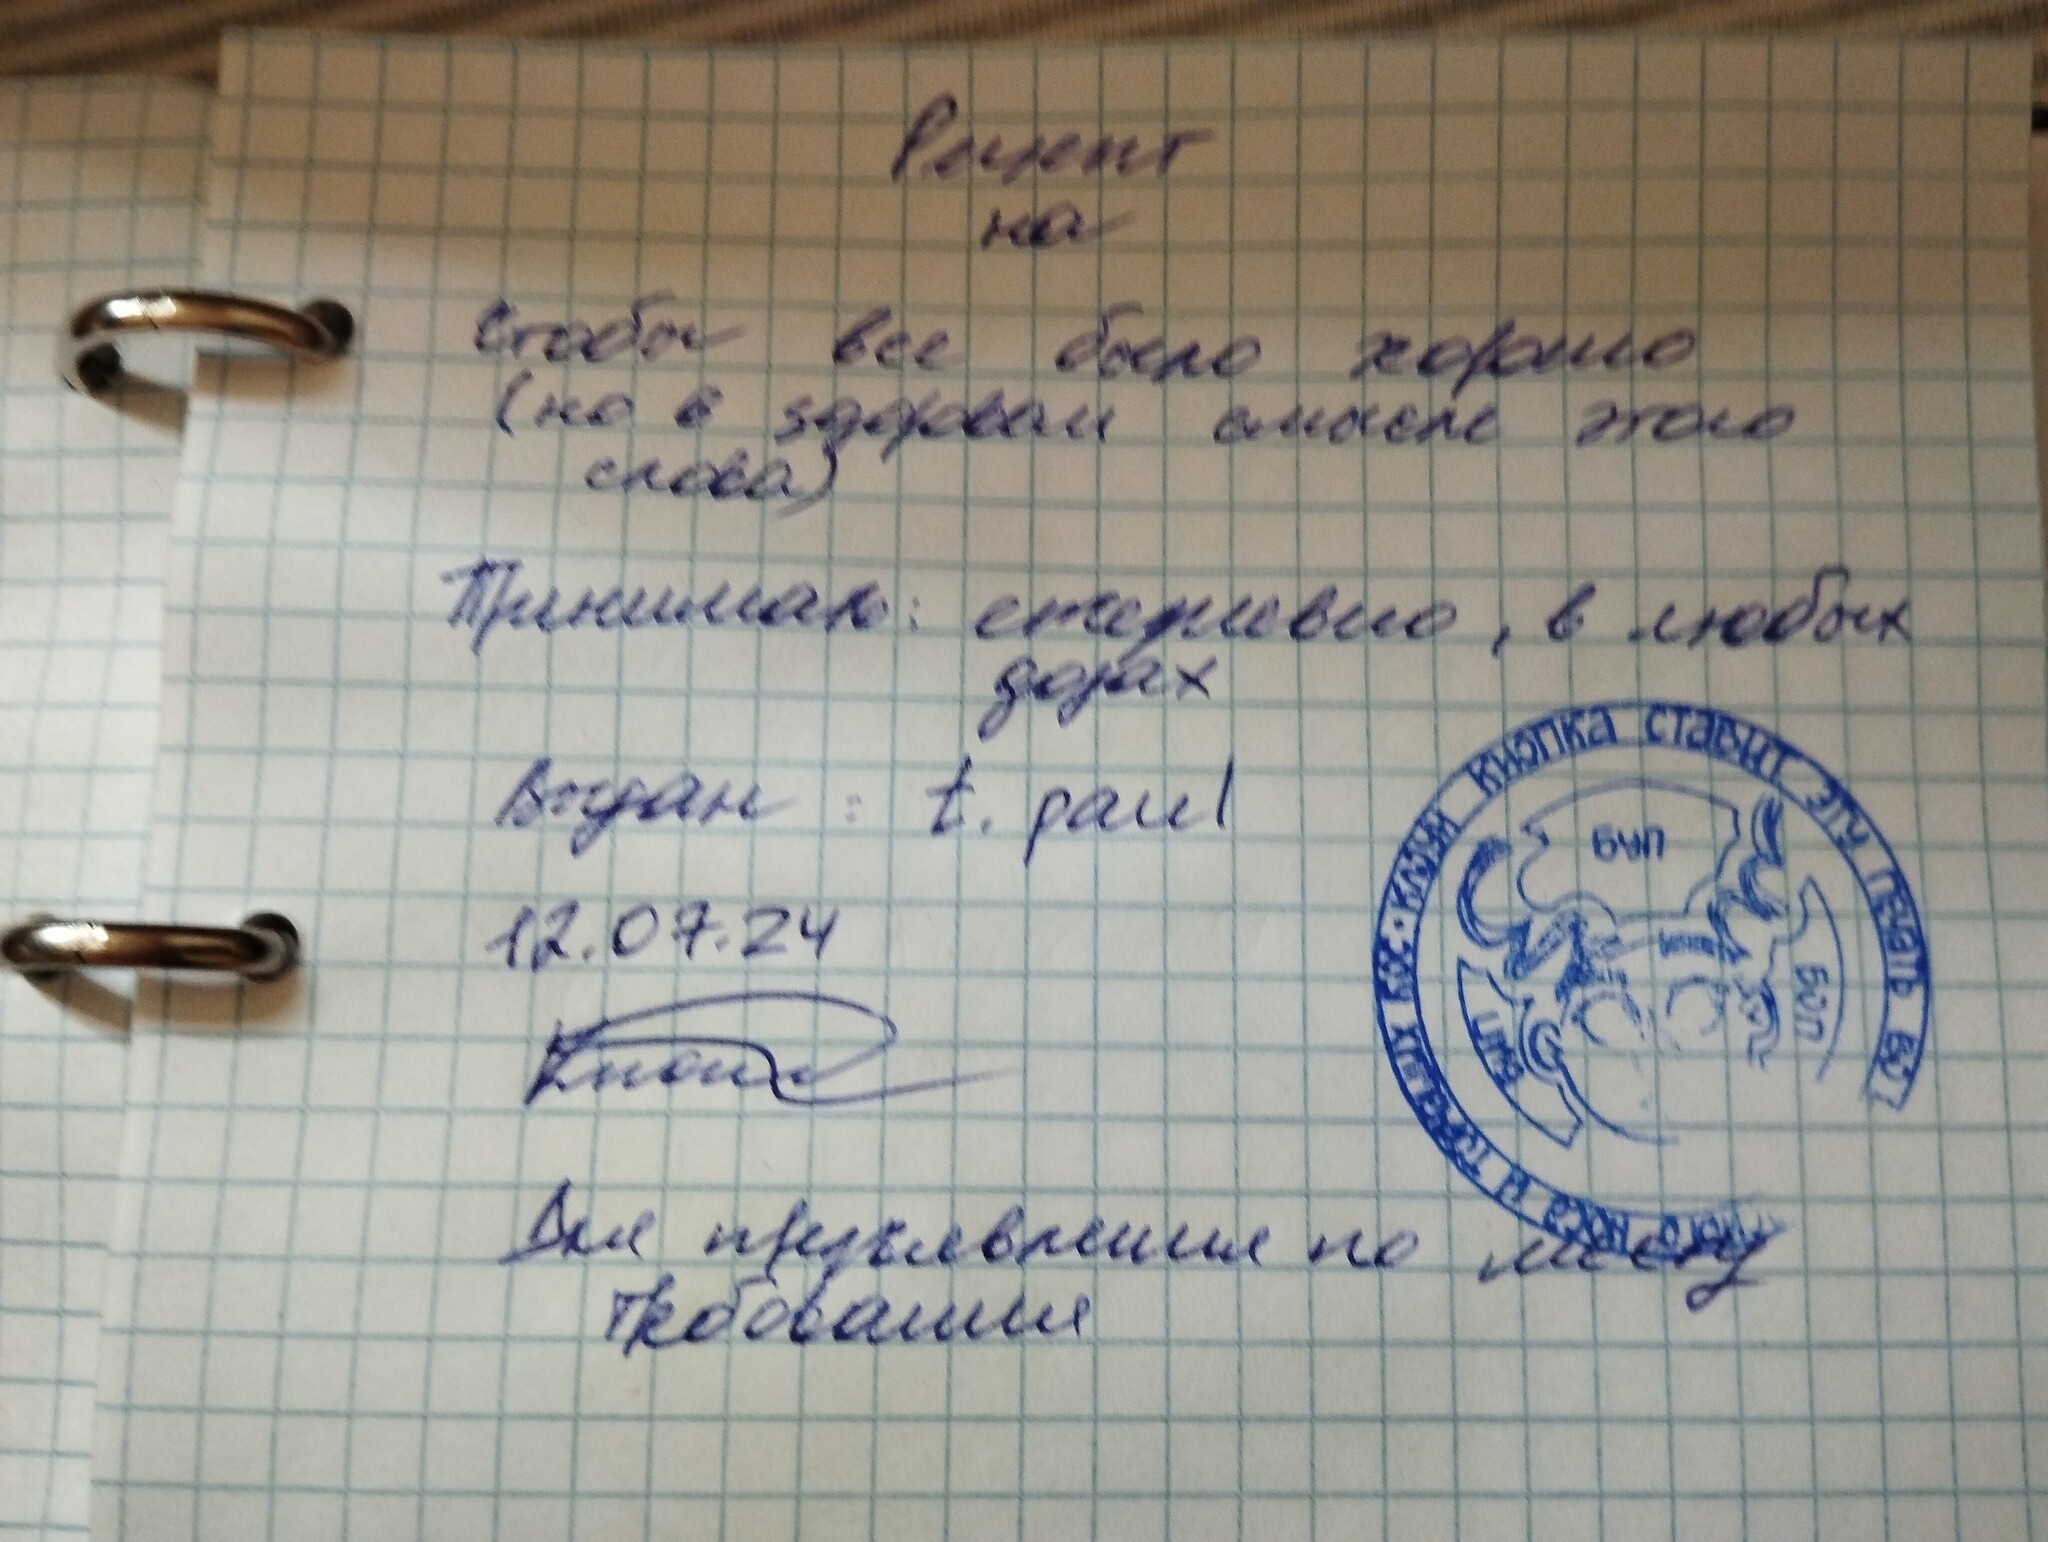 Рецепт
на
Чтобы все было хорошо
(но в здоровом смысле этого
слова)
Принимать: ежедневно, в любых
дозах
Выдан: t. paul
12.07.24
Для предъявления по месту
требования
КЛОУН КНОПКА СТАВИТ ЭТУ ПЕЧАТЬ
БУП
БУП
БУП